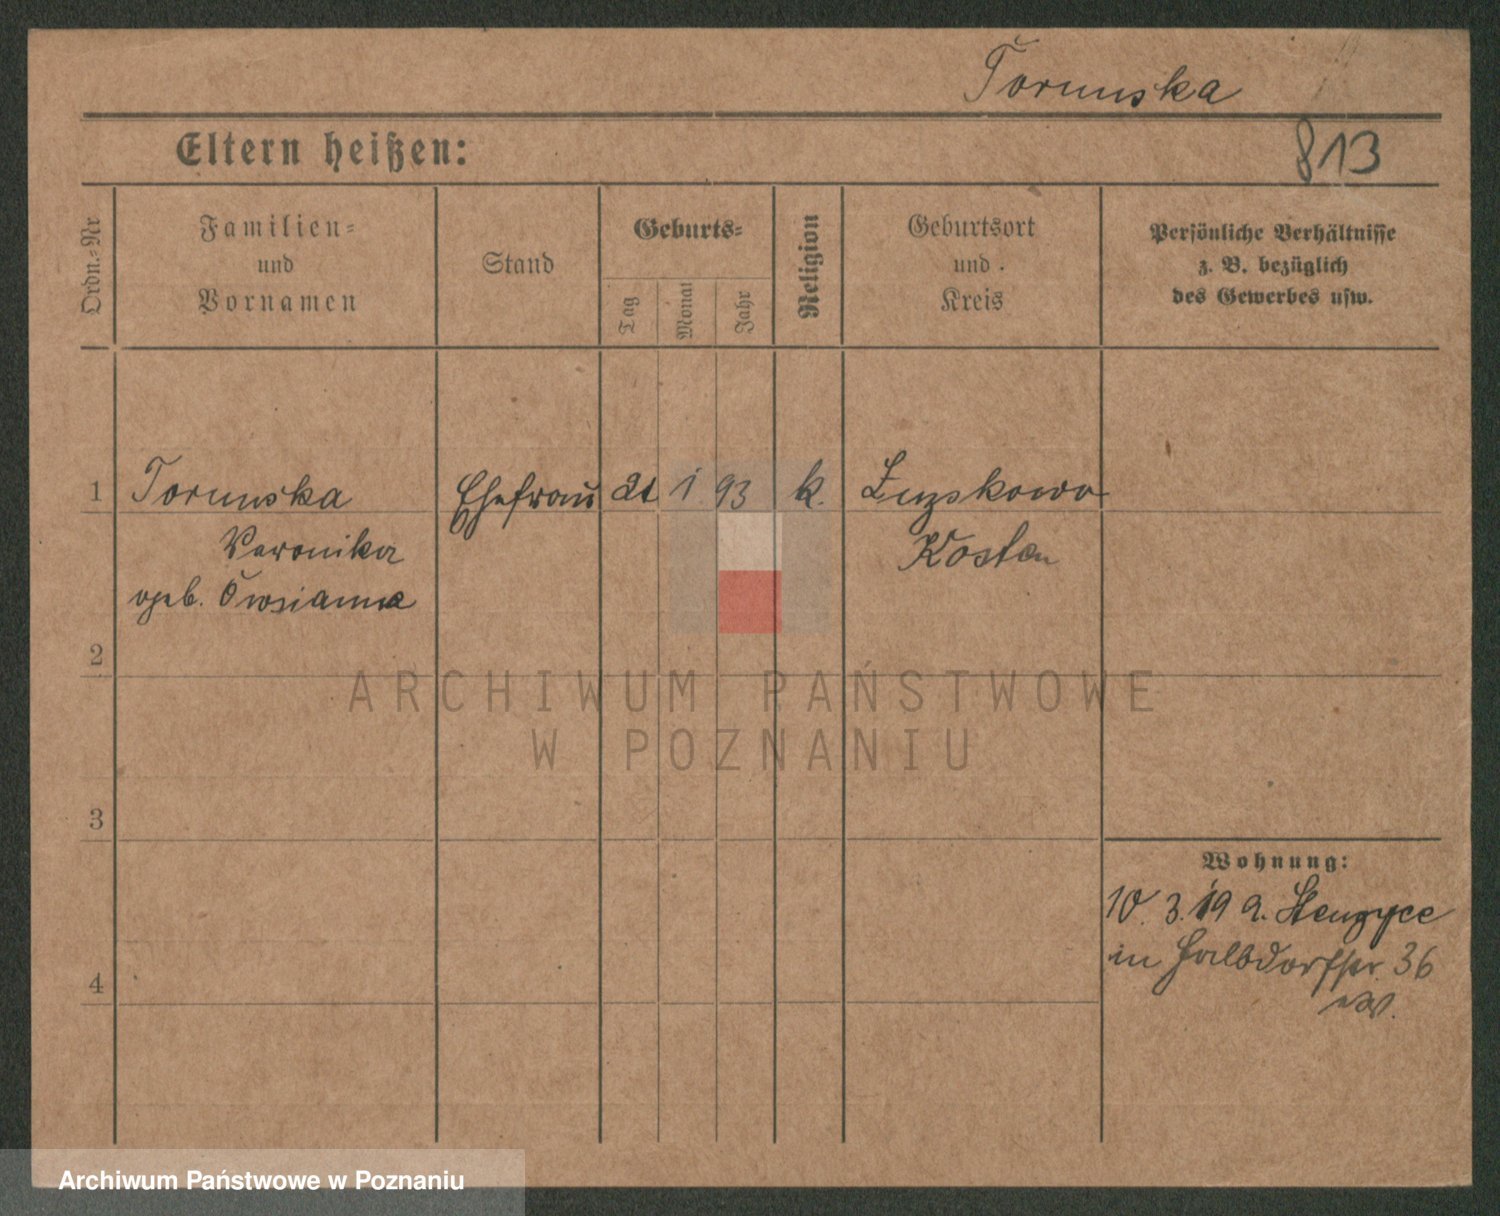 Torunska
813
Eltern heißen:
Ordn.-Nr
Familien-
und
Vornamen
Stand
Geburts-
Tag
Monat
Jahr
Religion
Geburtsort
und
Kreis
Persönliche Verhältnisse
z. B. bezüglich
des Gewerbes usw.
1 Torunska Ehefrau 21 1 93 k.
Veronika Kosten
geb.
2
3
4
Wohnung:
10. 3. 19
in Halbdorfstr. 36
ARCHIWUM PAŃSTWOWE
W POZNANIU
Archiwum Państwowe w Poznaniu